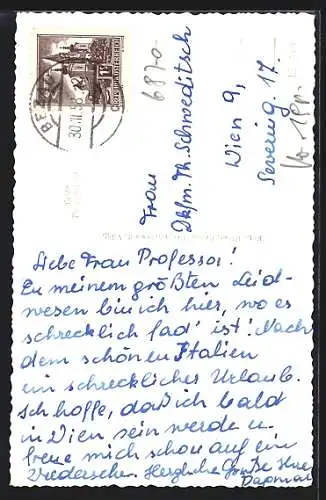 Liebe Frau Professor!
Zu meinem größten Leid-
wesen bin ich hier, wo es
schrecklich fad' ist! Nach
dem schönen Italien
ein schrecklicher Urlaub.
Ich hoffe, daß ich bald
in Wien sein werde u.
freue mich schon auf ein
Wiedersehen. Herzliche Grüße Ihre
Dagmar
Frau
Dkfm. Th. Schweditsch
Wien 9,
Severing 17.
6870
30.VII.58
REPUBLIK ÖSTERREICH